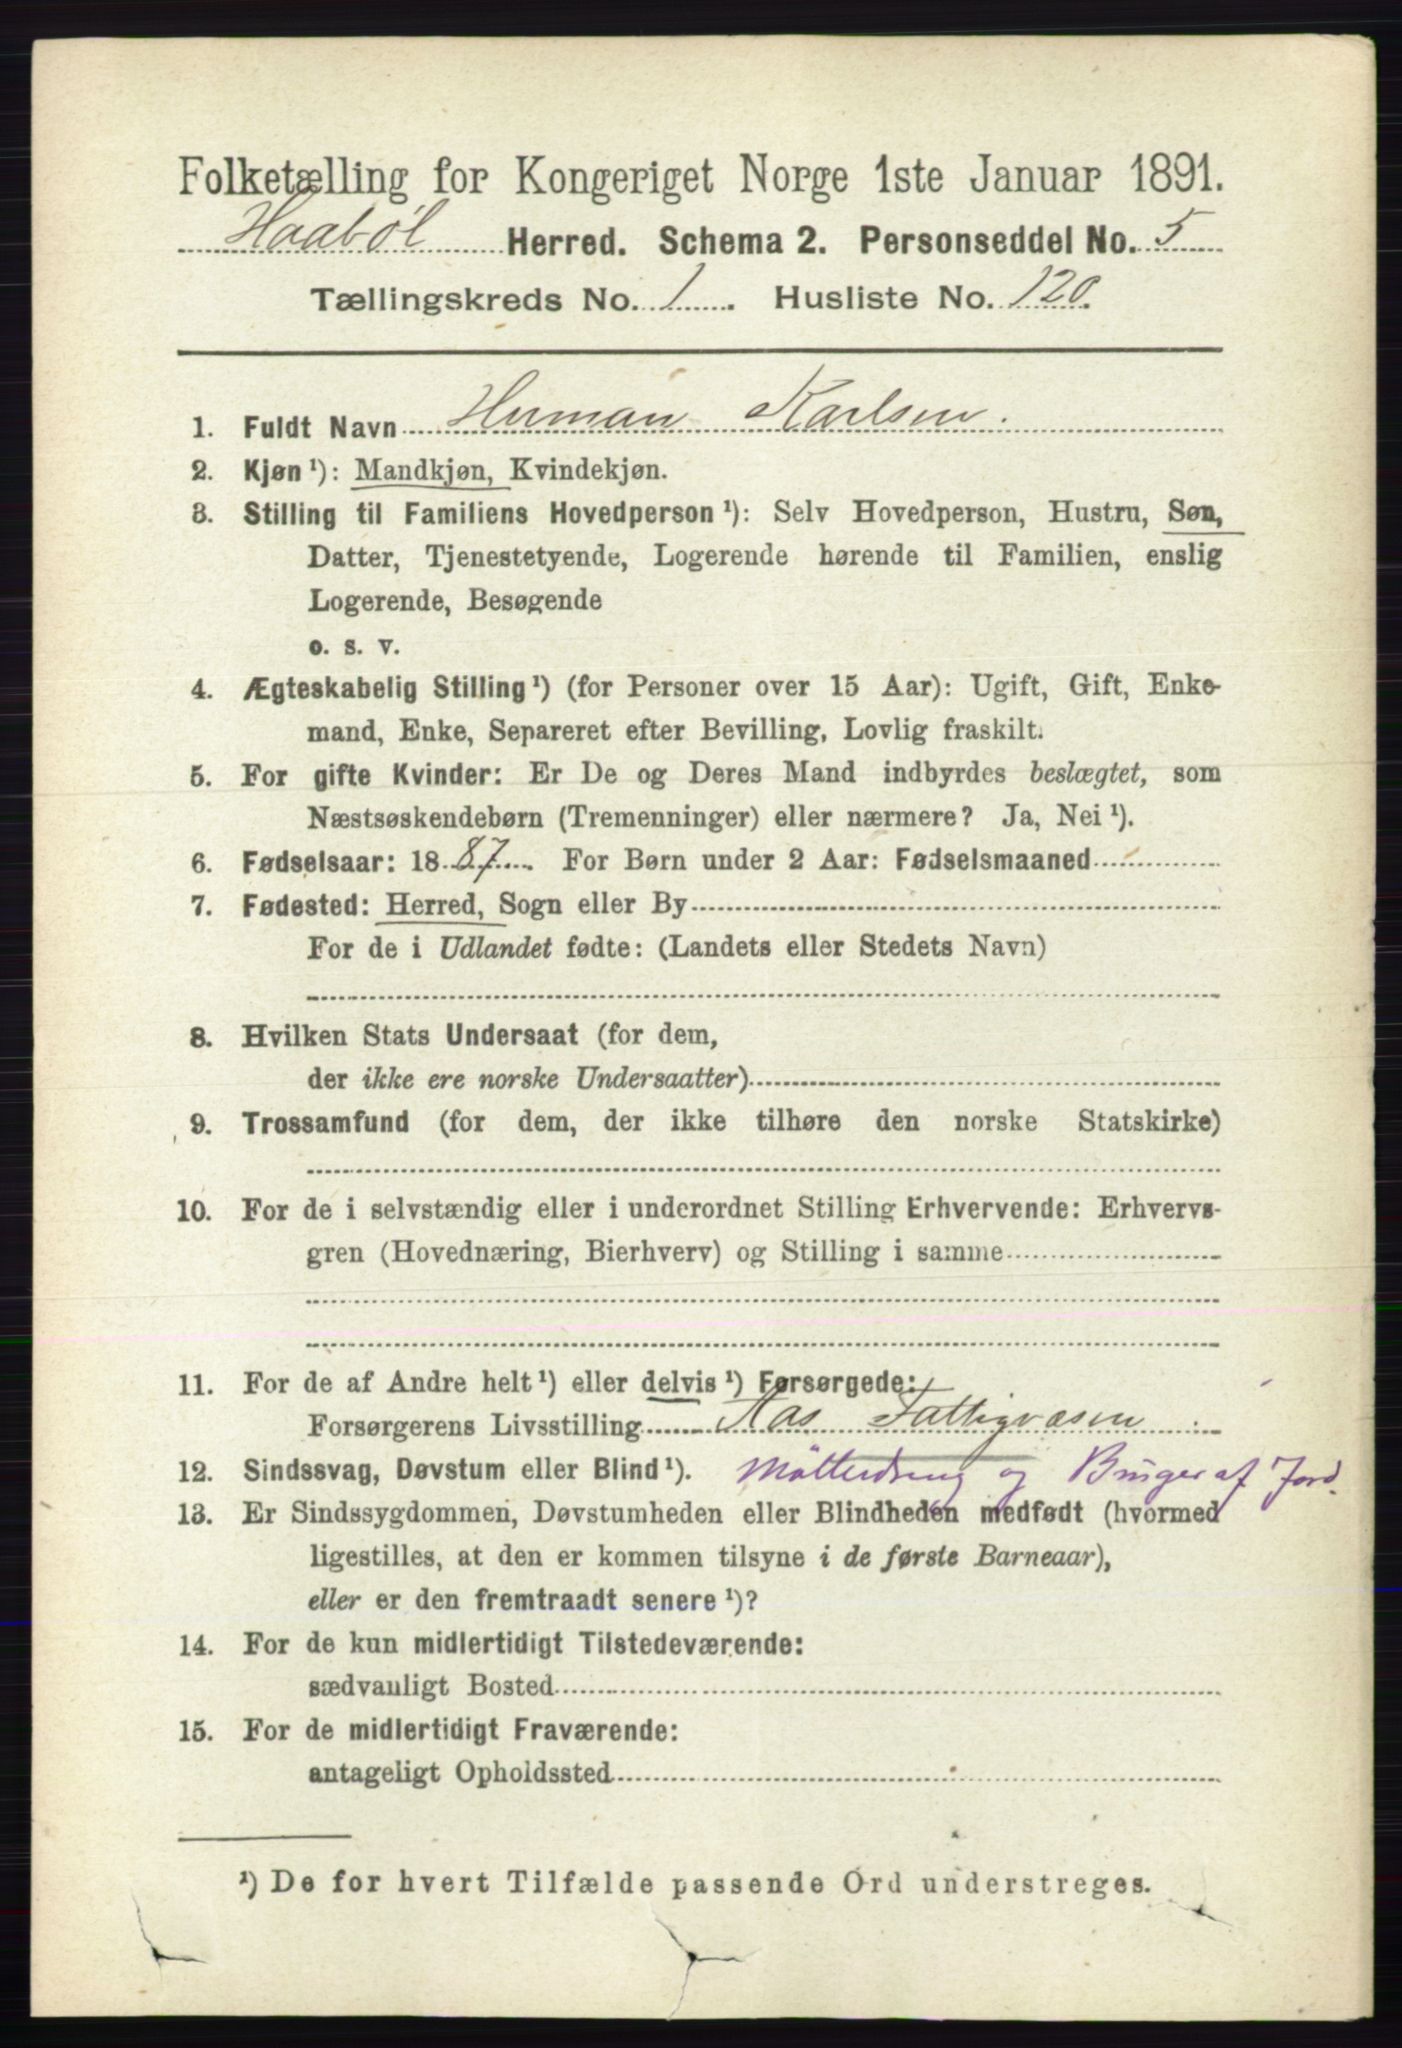 Folketælling for Kongeriget Norge 1ste Januar 1891.
Haabøl Herred. Schema 2. Personseddel No. 5
Tællingskreds No. 1. Husliste No. 120.
1. Fuldt Navn Herman Karlsen.
2. Kjøn ¹): Mandkjøn, Kvindekjøn.
3. Stilling til Familiens Hovedperson ¹): Selv Hovedperson, Hustru, Søn,
Datter, Tjenestetyende, Logerende hørende til Familien, enslig
Logerende, Besøgende
o. s. v.
4. Ægteskabelig Stilling ¹) (for Personer over 15 Aar): Ugift, Gift, Enke-
mand, Enke, Separeret efter Bevilling, Lovlig fraskilt.
5. For gifte Kvinder: Er De og Deres Mand indbyrdes beslægtet, som
Næstsøskendebørn (Tremenninger) eller nærmere? Ja, Nei ¹).
6. Fødselsaar: 1887. For Børn under 2 Aar: Fødselsmaaned
7. Fødested: Herred, Sogn eller By
For de i Udlandet fødte: (Landets eller Stedets Navn)
8. Hvilken Stats Undersaat (for dem,
der ikke ere norske Undersaatter)
9. Trossamfund (for dem, der ikke tilhøre den norske Statskirke)
10. For de i selvstændig eller i underordnet Stilling Erhvervende: Erhvervs-
gren (Hovednæring, Bierhverv) og Stilling i samme
11. For de af Andre helt ¹) eller delvis ¹) Forsørgede:
Forsørgerens Livsstilling Aas Fattigvæsen
12. Sindssvag, Døvstum eller Blind ¹). og Bruger af Jord.
13. Er Sindssygdommen, Døvstumheden eller Blindheden medfødt (hvormed
ligestilles, at den er kommen tilsyne i de første Barneaar),
eller er den fremtraadt senere ¹)?
14. For de kun midlertidigt Tilstedeværende:
sædvanligt Bosted
15. For de midlertidigt Fraværende:
antageligt Opholdssted
¹) De for hvert Tilfælde passende Ord understreges.